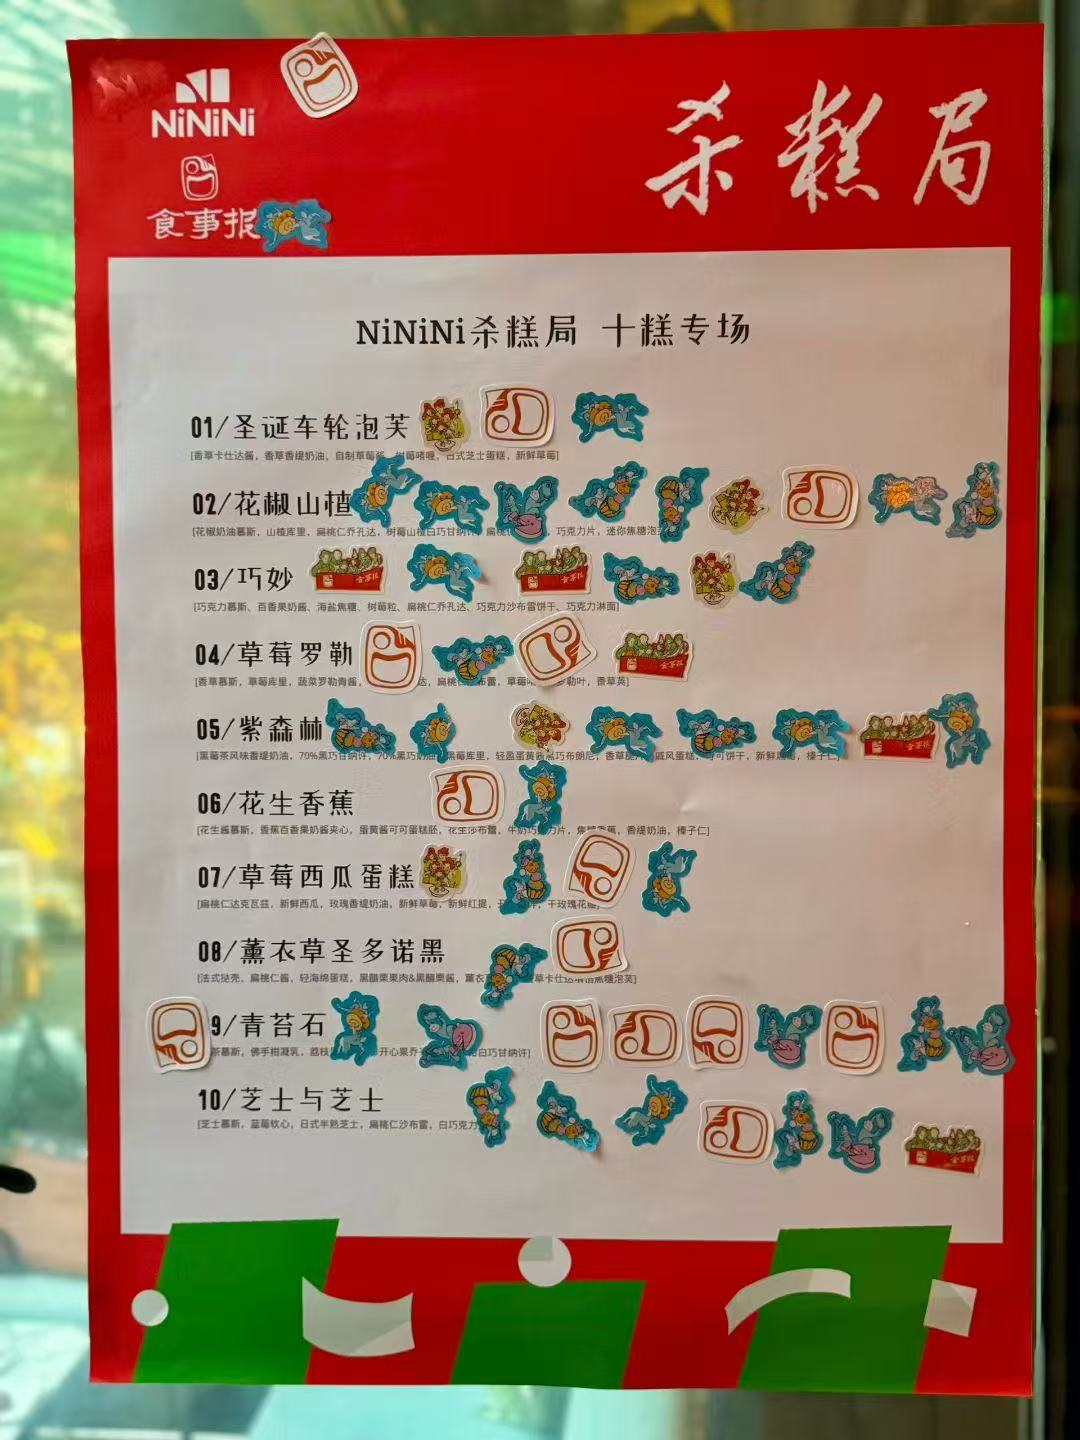 NiNiNi
食事报
杀糕局
NiNiNi杀糕局 十糕专场
01/圣诞车轮泡芙
[香草卡仕达酱，香草香缇奶油，自制草莓酱，树莓啫喱，日式芝士蛋糕，新鲜草莓]
02/花椒山楂
[花椒奶油慕斯，山楂库里，扁桃仁乔孔达，树莓山楂白巧甘纳许，扁桃 巧克力片，迷你焦糖泡芙]
03/巧妙
[巧克力慕斯、百香果奶酱、海盐焦糖、树莓粒、扁桃仁乔孔达、巧克力沙布雷饼干、巧克力淋面]
04/草莓罗勒
[香草慕斯，草莓库里，蔬菜罗勒青酱， 达，扁桃 布蕾，草莓 罗勒叶，香草荚]
05/紫森林
[黑莓茶风味香缇奶油，70%黑巧甘纳许，70%黑巧奶油，黑莓库里，轻盈蛋黄酱黑巧布朗尼，香草 戚风蛋糕，可可饼干，新鲜黑莓，榛子仁]
06/花生香蕉
[花生酱慕斯，香蕉百香果奶酱夹心，蛋黄酱可可蛋糕胚，花生沙布蕾，牛奶巧克力片，焦糖香蕉，香缇奶油，榛子仁]
07/草莓西瓜蛋糕
[扁桃仁达克瓦兹，新鲜西瓜，玫瑰香缇奶油，新鲜草莓，新鲜红提，开 干玫瑰花瓣]
08/薰衣草圣多诺黑
[法式挞壳，扁桃仁酱，轻海绵蛋糕，黑醋栗果肉&黑醋栗酱，薰衣 草卡仕达 焦糖泡芙]
9/青苔石
茶慕斯，佛手柑凝乳，荔枝 开心果乔 白巧甘纳许]
10/芝士与芝士
[芝士慕斯，蓝莓软心，日式半熟芝士，扁桃仁沙布雷，白巧克力